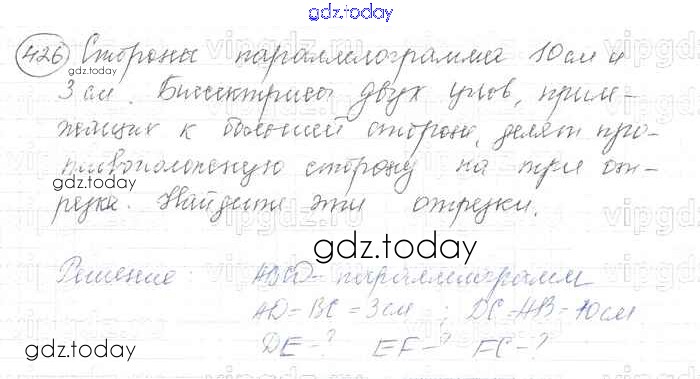 gdz.today
426 Стороны параллелограмма 10см и
gdz.today
3 см. Биссектрисы двух углов, приле-
жащих к большей стороне, делят про-
тивоположную сторону на три от-
gdz.today
резка. Найдите эти отрезки.
gdz.today
Решение: ABCD - параллелограмм
AD = BC = 3см ; DC = AB = 10см
DE - ? EF - ? FC - ?
gdz.today